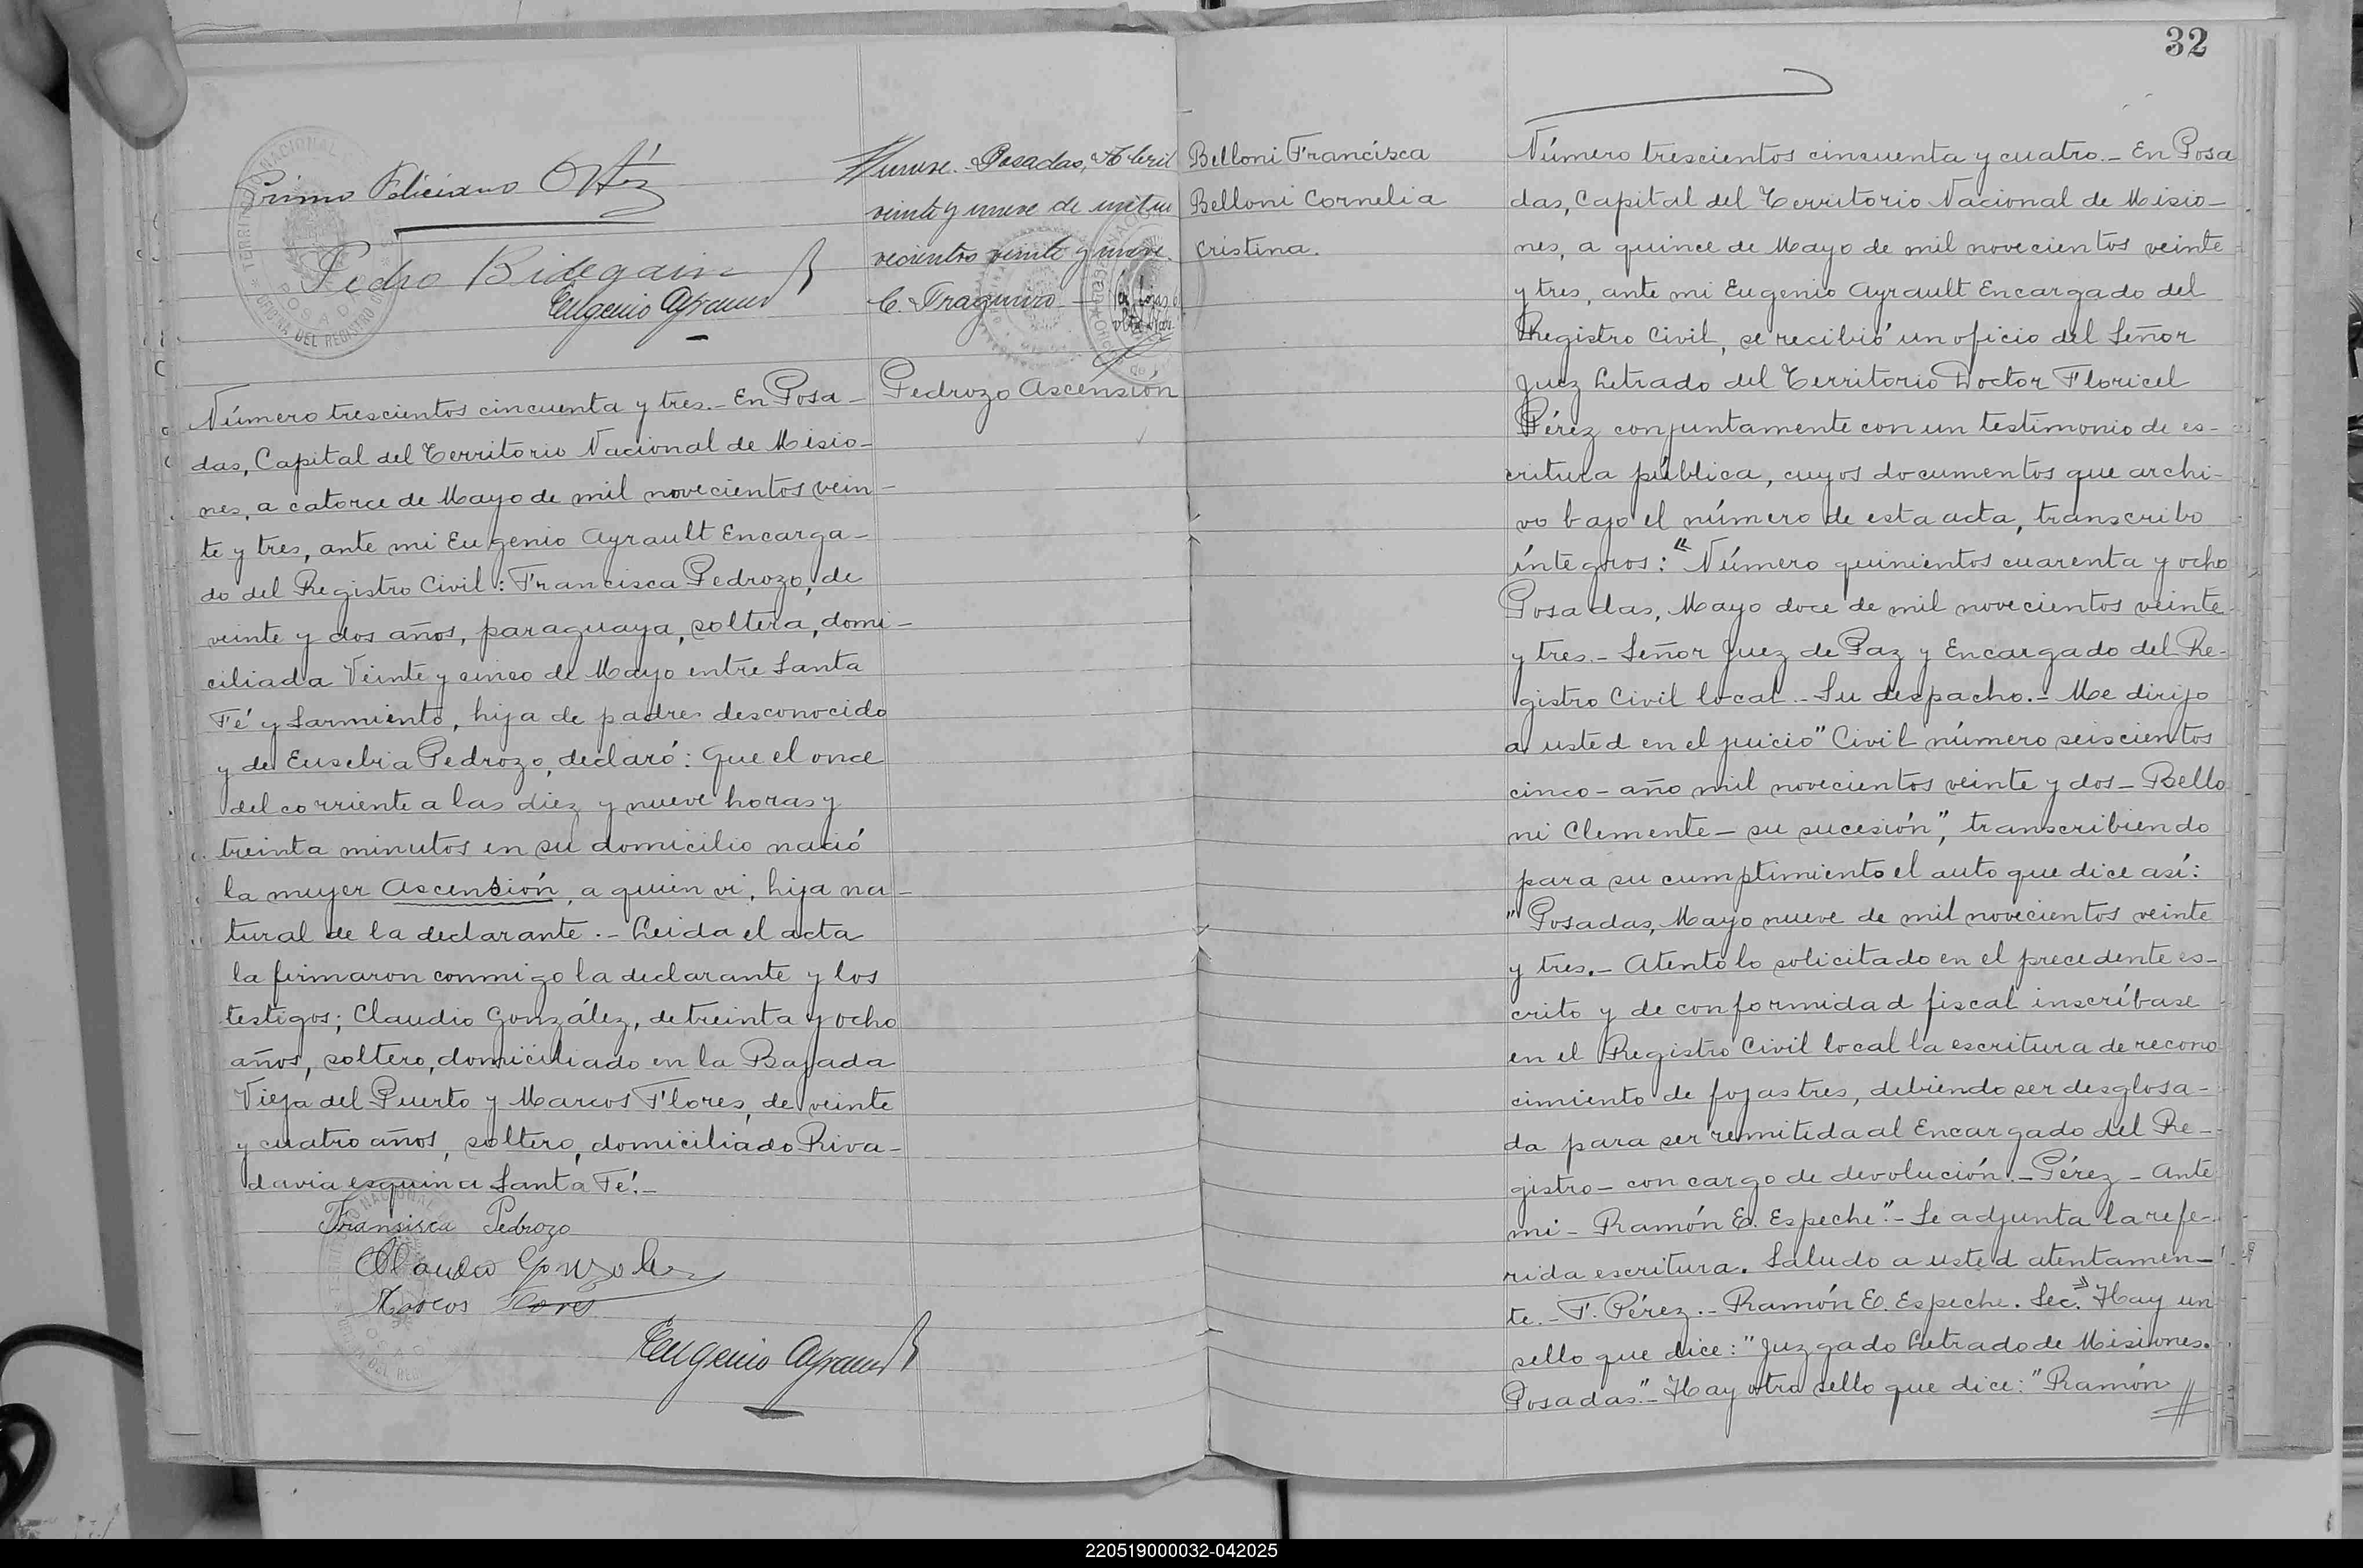 Primo Feliciano Ortíz
Pedro Bidegain
Eugenio Ayrault
Posadas, Abril
veinte y nueve de mil no
vecientos veinte y nueve.
C.
Pedrozo Ascensión
Número trescientos cincuenta y tres.- En Posa-
das, Capital del Territorio Nacional de Misio-
nes, a catorce de Mayo de mil novecientos vein-
te y tres, ante mi Eugenio Ayrault Encarga-
do del Registro Civil: Francisca Pedrozo, de
veinte y dos años, paraguaya, soltera, domi-
ciliada Veinte y cinco de Mayo entre Santa
Fé y Sarmiento, hija de padre desconocido
y de Eusebia Pedrozo, declaró: Que el once
del corriente a las diez y nueve horas y
treinta minutos en su domicilio nació
la mujer Ascensión, a quien vi, hija na-
tural de la declarante.- Leida el acta
la firmaron conmigo la declarante y los
testigos; Claudio González, de treinta y ocho
años, soltero, domiciliado en la Bajada
Vieja del Puerto y Marcos Flores, de veinte
y cuatro años, soltero, domiciliado Riva-
davia esquina Santa Fé.-
Fransisca Pedrozo
Claudio Gonzalez
Marcos Flores
Eugenio Ayrault
32
Belloni Francisca
Belloni Cornelia
Cristina.
Número trescientos cincuenta y cuatro.- En Posa
das, Capital del Territorio Nacional de Misio-
nes, a quince de Mayo de mil novecientos veinte
y tres, ante mi Eugenio Ayrault Encargado del
Registro Civil, se recibió un oficio del Señor
Juez Letrado del Territorio Doctor Floricel
Pérez conjuntamente con un testimonio de es-
critura pública, cuyos documentos que archi-
vo bajo el número de esta acta, transcribo
íntegros: «Número quinientos cuarenta y ocho
Posadas, Mayo doce de mil novecientos veinte
y tres.- Señor Juez de Paz y Encargado del Re-
gistro Civil local.- Su despacho.- Me dirijo
a usted en el juicio "Civil número seiscientos
cinco - año mil novecientos veinte y dos - Bello
ni Clemente - su sucesión", transcribiendo
para su cumptimiento el auto que dice así:
"Posadas, Mayo nueve de mil novecientos veinte
y tres.- Atento lo solicitado en el precedente es-
crito y de conformidad fiscal inscríbase
en el Registro Civil local la escritura de recono
cimiento de fojas tres, debiendo ser desglosa-
da para ser remitida al Encargado del Re-
gistro - con cargo de devolución.- Pérez - Ante
mi - Ramón E. Espeche".- Se adjunta la refe-
rida escritura. Saludo a usted atentamen-
te.- F. Pérez.- Ramón E. Espeche. Sec.» Hay un
sello que dice: "Juzgado Letrado de Misiones.
Posadas".- Hay otro sello que dice: "Ramón
220519000032-042025